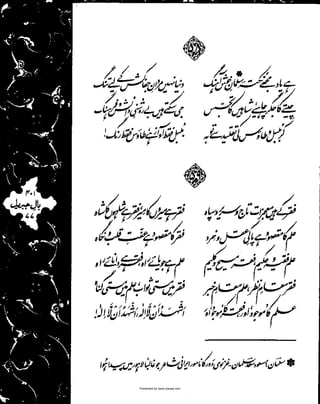 ۵۸
ہے یاد مجھے نکتۂ سلمانِ خوش آہنگ
دنیا نہیں مردانِ جفاکش کے لیے تنگ
چیتے کا جگر چاہیے، شاہیں کا تجسس
جی سکتے ہیں بے روشنیِ دانش و فرہنگ
کر بلبل و طاؤس کی تقلید سے توبہ
بلبل فقط آواز ہے، طاؤس فقط رنگ!
۵۹
فقر کے ہیں معجزات تاج و سریر و سپاہ
فقر ہے میروں کا میر، فقر ہے شاہوں کا شاہ
علم کا مقصود ہے پاکیِ عقل و خرد
فقر کا مقصود ہے عفتِ قلب و نگاہ
علم فقیہ و حکیم، فقر مسیح و کلیم
علم ہے جویائے راہ، فقر ہے دانائے راہ
فقر مقامِ نظر، علم مقامِ خبر
فقر میں مستی ثواب، علم میں مستی گناہ
علم کا موجود اور، فقر کا موجود اور
اشہد ان لا الٰہ، اشہد ان لا الٰہ!
سلمان: مسعود سعد سلمان۔ غزنوی دور کا نامور ایرانی شاعر جو غالباً لاہور میں پیدا ہوا
۳۰۱
بالِ جبریل
۷۷